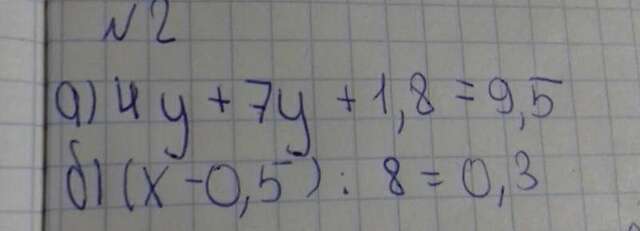 №2
а) 4y + 7y + 1,8 = 9,5
б) (x - 0,5) : 8 = 0,3